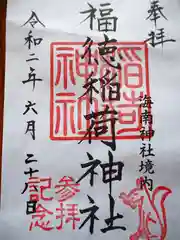 奉拝
海南神社境内
福徳稲荷神社
稲荷
神社
令和二年六月二十八日
参拝
記念